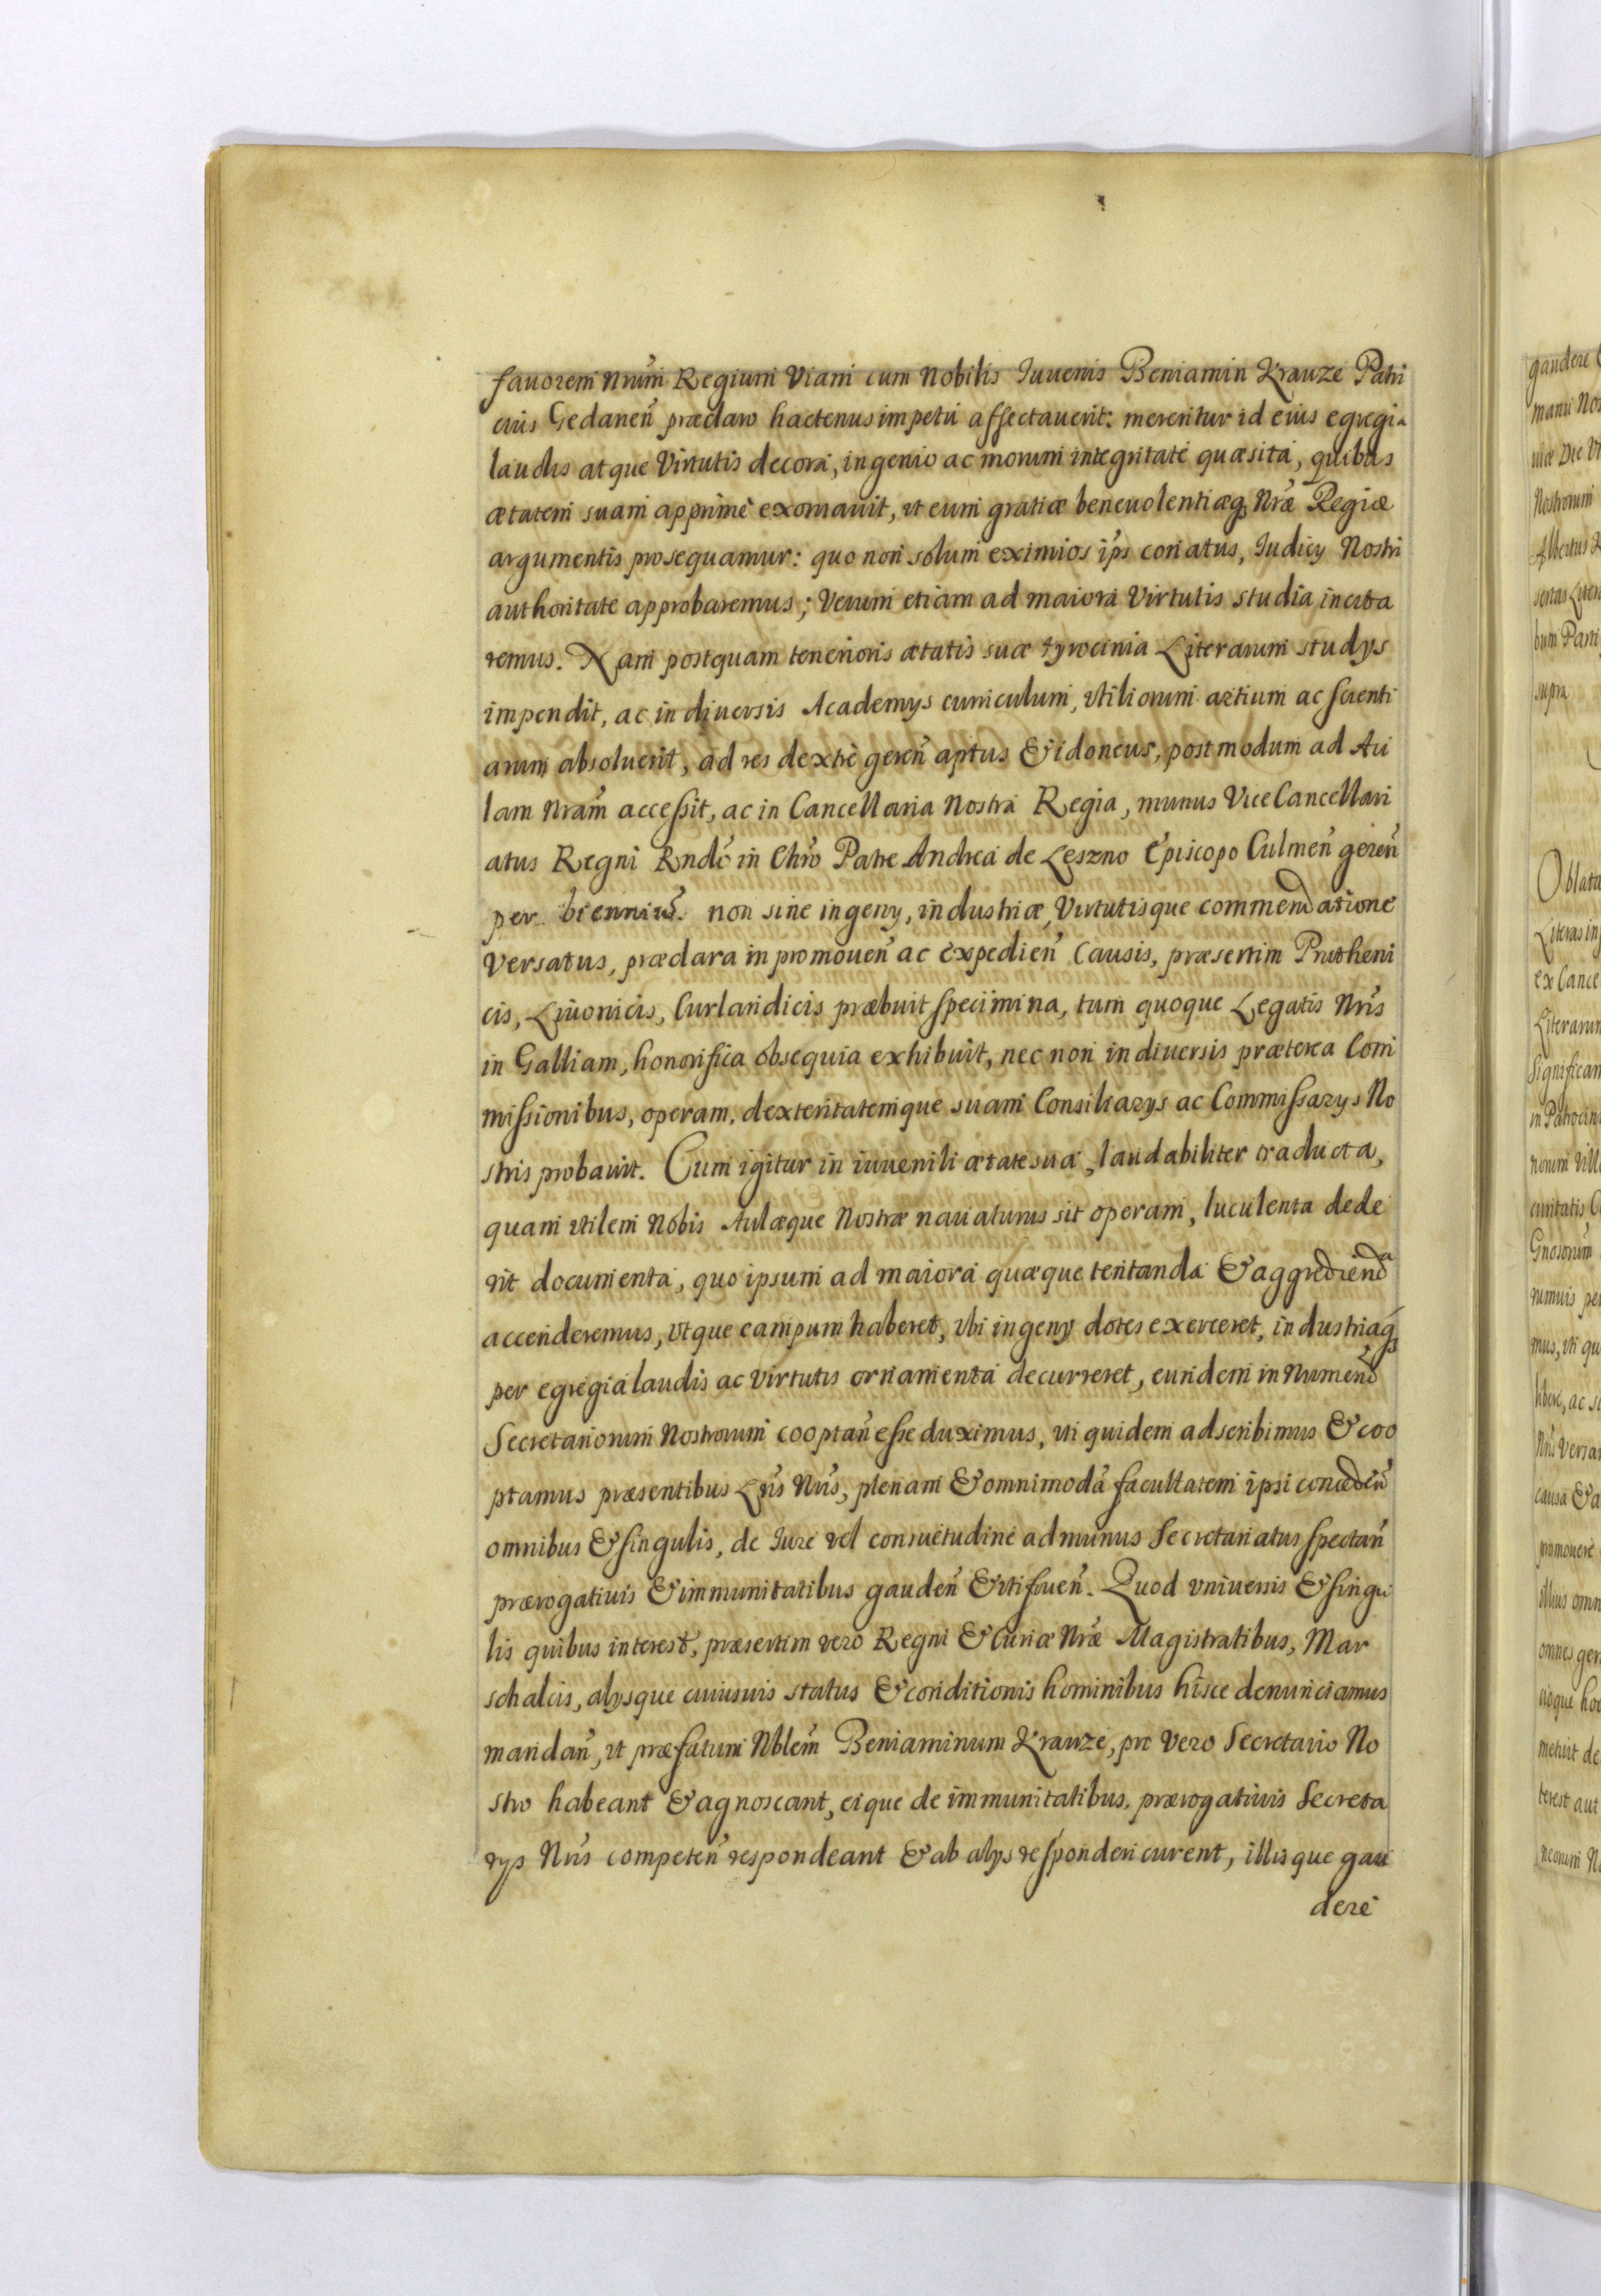 favorem Nrũm Regium Viam cum Nobilis Iuvenis Beniamin Krauze Patri
cius Gedaneñ præclaro hactenus impetu affectauerit: merentur id eius egregia
laudis atque Virtutis decora, ingenio ac morum integritate quæsita, quibus
ætatem suam apprime exornauit, vt eum gratiæ beneuolentiæq Nræ Regiæ
argumentis prosequamur: quo non solum eximios ips conatus, Iudicy Nostri
authoritate approbaremus; Verum etiam ad maiora Virtutis studia incita
remus. Nam postquam tenerioris ætatis suæ tyrocinia Literarum studys
impendit, ac in diuersis Academys curriculum, vtiliorum artium ac scienti
arum absoluerit, ad res dextrè gereñ aptus & idoneus, postmodum ad Au
lam Nram̃ accessit, ac in Cancellaria Nostra Regia, munus ViceCancellari
atus Regni Rndõ in Chrõ Patre Andrea de Leszno Episcopo Culmeñ gereñ
per bienniũ. non sine ingeny, industriæ, Virtutisque commendatione
versatus, præclara in promoueñ ac expedieñ Causis, præsertim Prutheni
cis, Liuonicis, Curlandicis præbuit specimina, tum quoque Legatis Nrĩs
in Galliam, honorifica obsequia exhibuit, nec non in diuersis præterea Com
missionibus, operam, dexteritatemque suam Consiliarys ac Commissarys No
stris probauit. Cum igitur in iuuenili ætate sua, laudabiliter traducta,
quam vtilem Nobis Aulæque Nostræ nauaturus sit operam, luculenta dede
rit documenta, quo ipsum ad maiora quæque tentanda & aggredienda
accenderemus, vtque campum haberet, vbi ingeny dotes exerceret, industriaq
per egregia laudis ac virtutis ornamenta decurreret, eundem in Numerũ
Secretariorum Nostrorum cooptañ esse duximus, vti quidem adscribimus & coo
ptamus præsentibus Lrĩs Nrĩs, plenam & omnimodã facultatem ipsi concedeñ
omnibus & singulis, de Iure vel consuetudine ad munus Secretariatus spectañ
prærogatiuis & immunitatibus gaudeñ & vtifrueñ. Quod vniuersis & singu
lis quibus interest, præsertim vero Regni & Curiæ Nræ Magistratibus, Mar
schalcis, alysque cuiusuis status & conditionis hominibus hisce denunciamus
mandañ, vt præfatum Nblem̃ Beniaminum Krauze, pro vero Secretario No
stro habeant & agnoscant, eique de immunitatibus, prærogatiuis Secreta
rys Nrĩs competeñ respondeant & ab alys responderi curent, illisque gau
dere